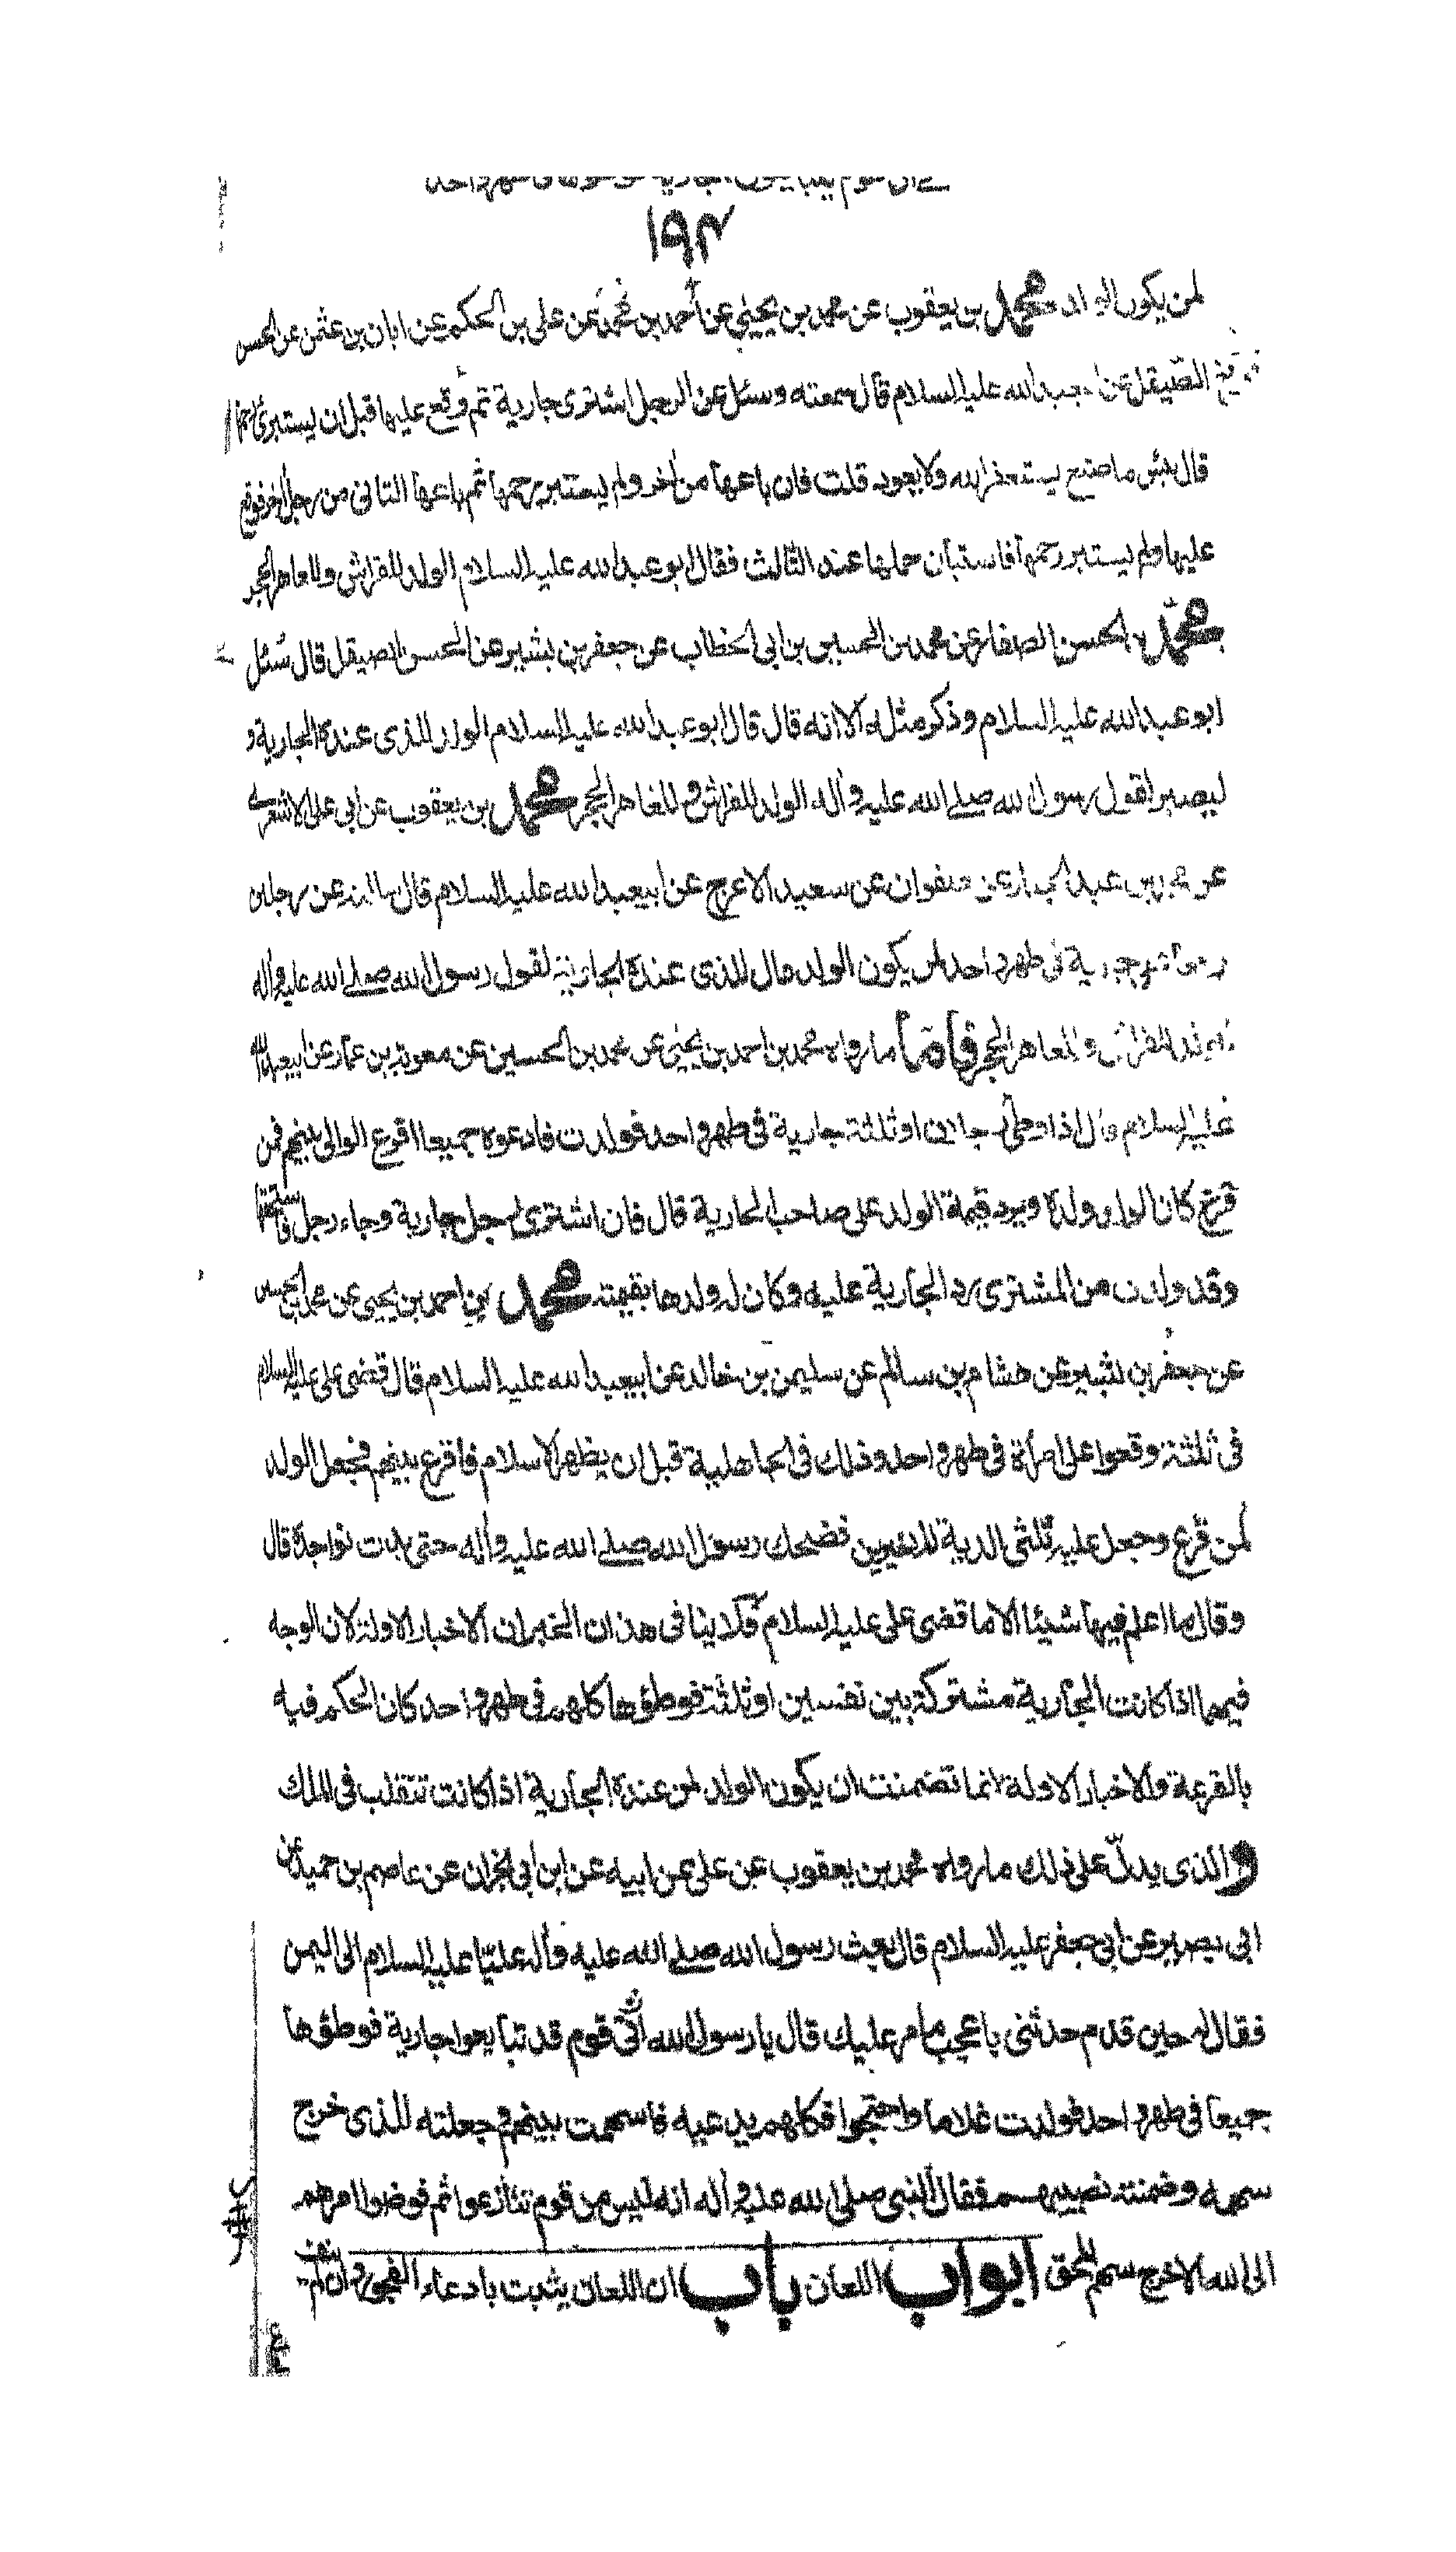 ١٩٣
لمن يكون الولد محمد بن يعقوب عن محمد بن يحيى عن احمد بن محمد عن على بن الحكم عن ابان بن عثمن عن الحسن
الصيقل عن عبد الله عليه السلام قال سمعته وسئل عن الرجل اشترى جارية ثم وقع عليها قبل ان يستبرئ رحمها
قال بئس ما صنع يستغفر الله ولا يعود قلت فان باعها من اخر ولم يستبرء رحمها ثم باعها الثانى من رجل اخر فوقع
عليها ولم يستبرء رحمها فاستبان حملها عند الثالث فقال ابو عبد الله عليه السلام الولد للفراش وللعاهر الحجر
محمد بن الحسن الصفار عن محمد بن الحسين بن ابى الخطاب عن جعفر بن بشير عن الحسن الصيقل قال سئل
ابو عبد الله عليه السلام وذكر مثله الا انه قال قال ابو عبد الله عليه السلام الولد للذى عنده الجارية و
ليصبر لقول رسول الله صلى الله عليه وآله الولد للفراش وللعاهر الحجر محمد بن يعقوب عن ابى على الاشعرى
عن محمد بن عبد الجبار عن صفوان عن سعيد الاعرج عن ابيعبد الله عليه السلام قال سالته عن رجلين
وقعا على جارية فى طهر واحد لمن يكون الولد قال للذى عنده الجارية لقول رسول الله صلى الله عليه وآله
الولد للفراش وللعاهر الحجر فاما ما رواه محمد بن احمد بن يحيى عن محمد بن الحسين عن معوية بن عمار عن ابيعبد الله
عليه السلام قال اذا وطى رجلان او ثلثة جارية فى طهر واحد فولدت فادعوه جميعا اقرع الوالى بينهم فمن
قرع كان الولد ولده ويرد قيمة الولد على صاحب الجارية قال فان اشترى رجل جارية وجاء رجل فاستحقها
وقد ولدت من المشترى رد الجارية عليه وكان له ولدها بقيمته محمد بن احمد بن يحيى عن محمد بن الحسين
عن جعفر بن بشير عن هشام بن سالم عن سليمن بن خالد عن ابيعبد الله عليه السلام قال قضى على عليه السلام
فى ثلثة وقعوا على امرأة فى طهر واحد وذلك فى الجاهلية قبل ان يظهر الاسلام فاقرع بينهم فجعل الولد
لمن قرع وجعل عليه ثلثى الدية للاخيرين فضحك رسول الله صلى الله عليه وآله حتى بدت نواجذه قال
وقال ما اعلم فيها شيئا الا ما قضى على عليه السلام فلا ينافى هذان الخبران الاخبار الاولة لان الوجه
فيهما اذا كانت الجارية مشتركة بين نفسين او ثلثة فوطؤها كلهم فى طهر واحد كان الحكم فيه
بالقرعة والاخبار الاولة انما تضمنت ان يكون الولد لمن عنده الجارية اذا كانت تتقلب فى الملك
والذى يدل على ذلك ما رواه محمد بن يعقوب عن على عن ابيه عن ابن ابى نجران عن عاصم بن حميد عن
ابى بصير عن ابى جعفر عليه السلام قال بعث رسول الله صلى الله عليه وآله عليا عليه السلام الى اليمن
فقال له حين قدم حدثنى باعجب ما مر عليك قال يا رسول الله اتانى قوم قد تبايعوا جارية فوطؤها
جميعا فى طهر واحد فولدت غلاما واحتجوا فكلهم يدعيه فاسهمت بينهم وجعلته للذى خرج
سهمه وضمنته نصيبهم فقال النبى صلى الله عليه وآله انه ليس من قوم تنازعوا ثم فوضوا امرهم
الى الله الا خرج سهم المحق ابواب اللعان باب ان اللعان يثبت بادعاء الفجور وان لم